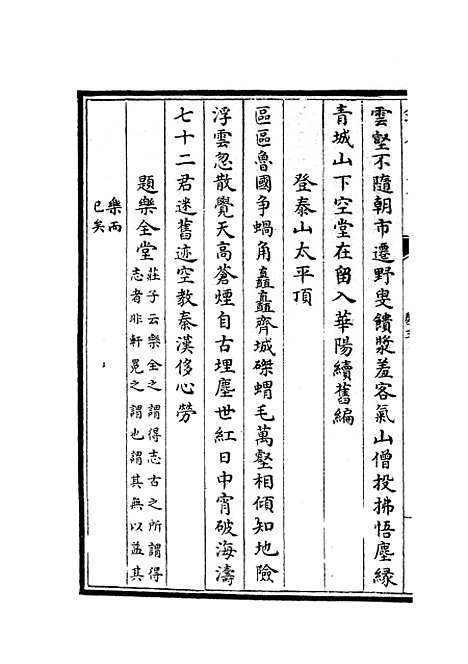 雲壑不隨朝市遷野叟饋漿羞客氣山僧投拂悟塵緣
青城山下空堂在留入華陽續舊編
登泰山太平頂
區區魯國争蝸角矗矗齊城磔蝟毛萬壑相傾知地險
浮雲忽散覺天高蒼煙自古埋塵世紅日中宵破海濤
七十二君迷舊迹空教秦漢侈心勞
題樂全堂
莊子云樂全之謂得志古之所謂得
志者非軒冕之謂也謂其無以益其
樂而
已矣